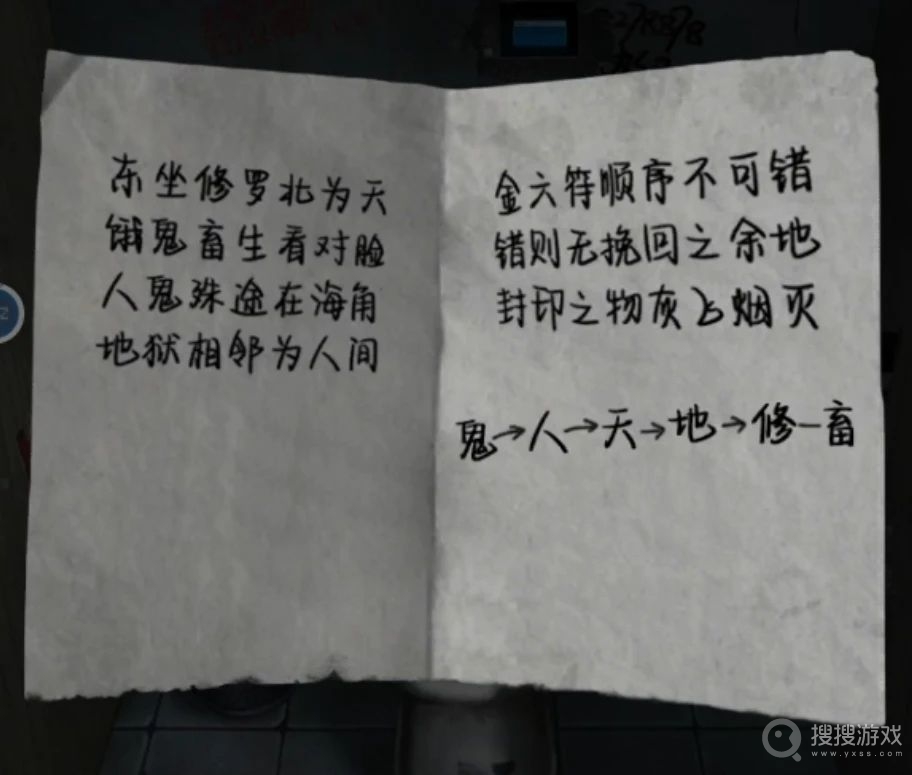 东坐修罗北为天
饿鬼畜生看对脸
人鬼殊途在海角
地狱相邻为人间
金六符顺序不可错
错则无挽回之余地
封印之物灰飞烟灭
鬼→人→天→地→修—畜
搜搜游戏
www.yxss.com